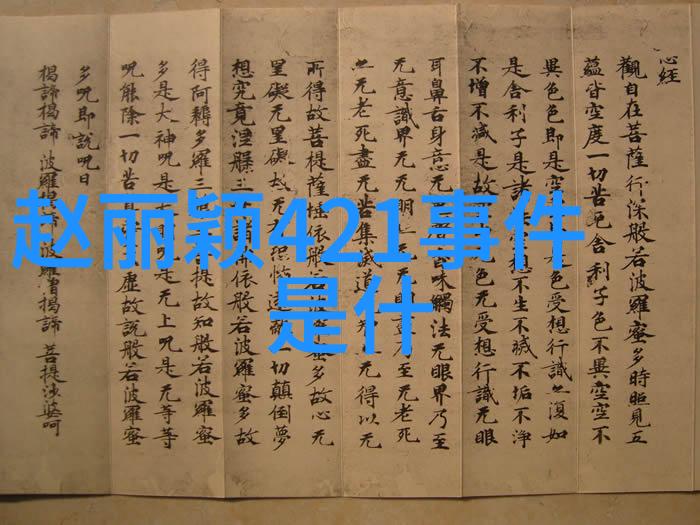 赵丽颖421事件
是什
心经
觀自在菩薩行深般若波羅蜜多時照見五
蘊皆空度一切苦厄舍利子色不異空空不
異色色即是空是色受想行識亦復如
是舍利子是諸空想不生不滅不垢不淨
不增不減是故色无受想行識无眼
耳鼻舌身意无味觸法无眼界乃至
无意識界无无明无乃至无老死
亦无老死盡无苦集滅道无得以无
所得故菩提薩埵依般若波多故心无
罣礙无罣礙故无恐怖遠一切顛倒夢
想究竟涅槃三諸依般若波羅蜜多故
得阿耨多羅三提故知般若波羅蜜
多是大神呪是呪是无上呪是无等等
呪能除一切苦虛故說般若波羅蜜
多呪即說呪曰
揭諦揭諦 波羅揭諦 波羅僧揭諦 菩提沙婆呵